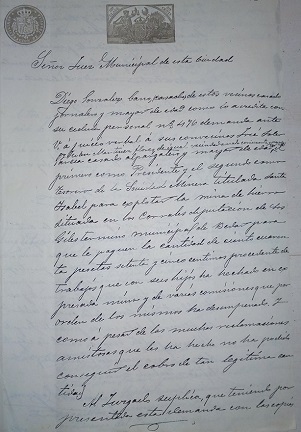 Señor Juez Municipal de esta Ciudad
Diego Gonzalez Cano, casado de estos vecinos
jornalero y mayor de edad como lo acredita con
su cedula personal nº 476 demanda ante
V. á juicio verbal á sus convecinos José Soler
y mayores de edad, el
primero como Presidente y el segundo como
Tesorero de la Sociedad Minera titulada Santa
Isabel para explotar la mina de hierro
situada en los Corrales diputacion de los
termino municipal de para
que le paguen la cantidad de ciento cuaren-
ta pesetas setenta y cinco centimos procedente de
trabajos que con sus hijos ha hechado en ex-
presada mina y de varias comisiones que por
orden de los mismos ha desempeñado y
como á pesar de las muchas reclamaciones
amistosas que les ha hecho no ha podido
conseguir el cobro de tan legitima can-
tidad
Al Juzgado suplica, que teniendo por
presentada esta demanda con las copias